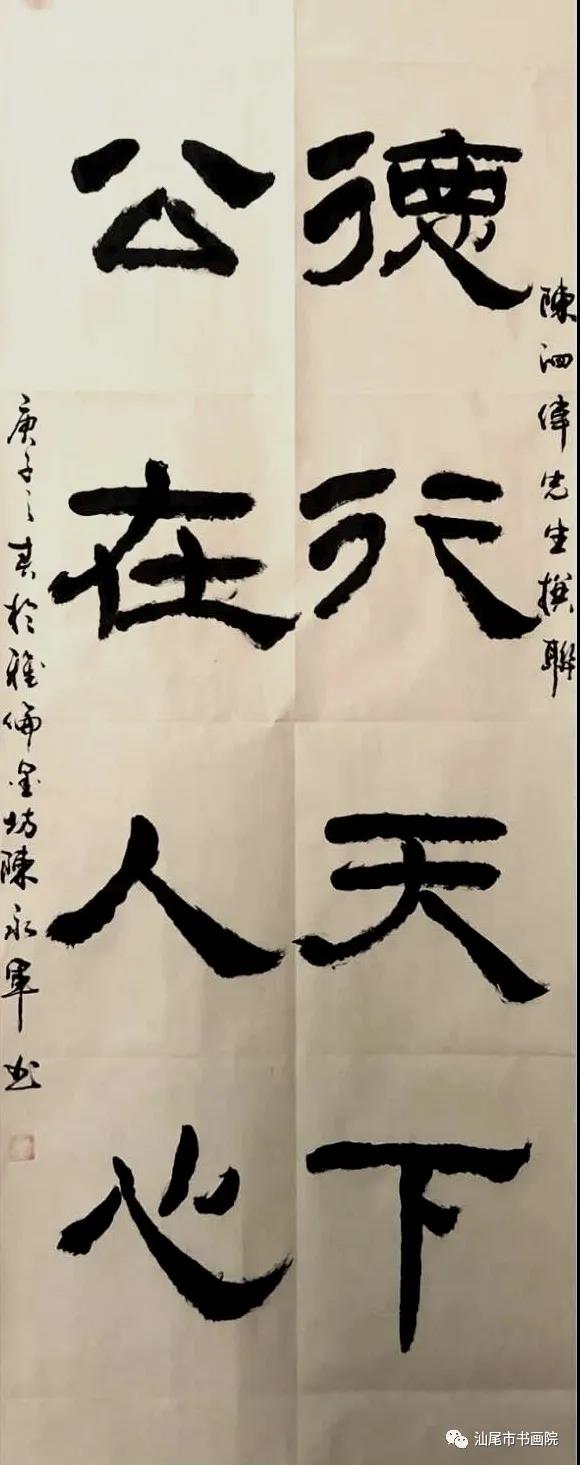 陳泗偉先生撰聯
德行天下
公在人心
庚子之春於雅倫墨坊陳永軍书
汕尾市书画院